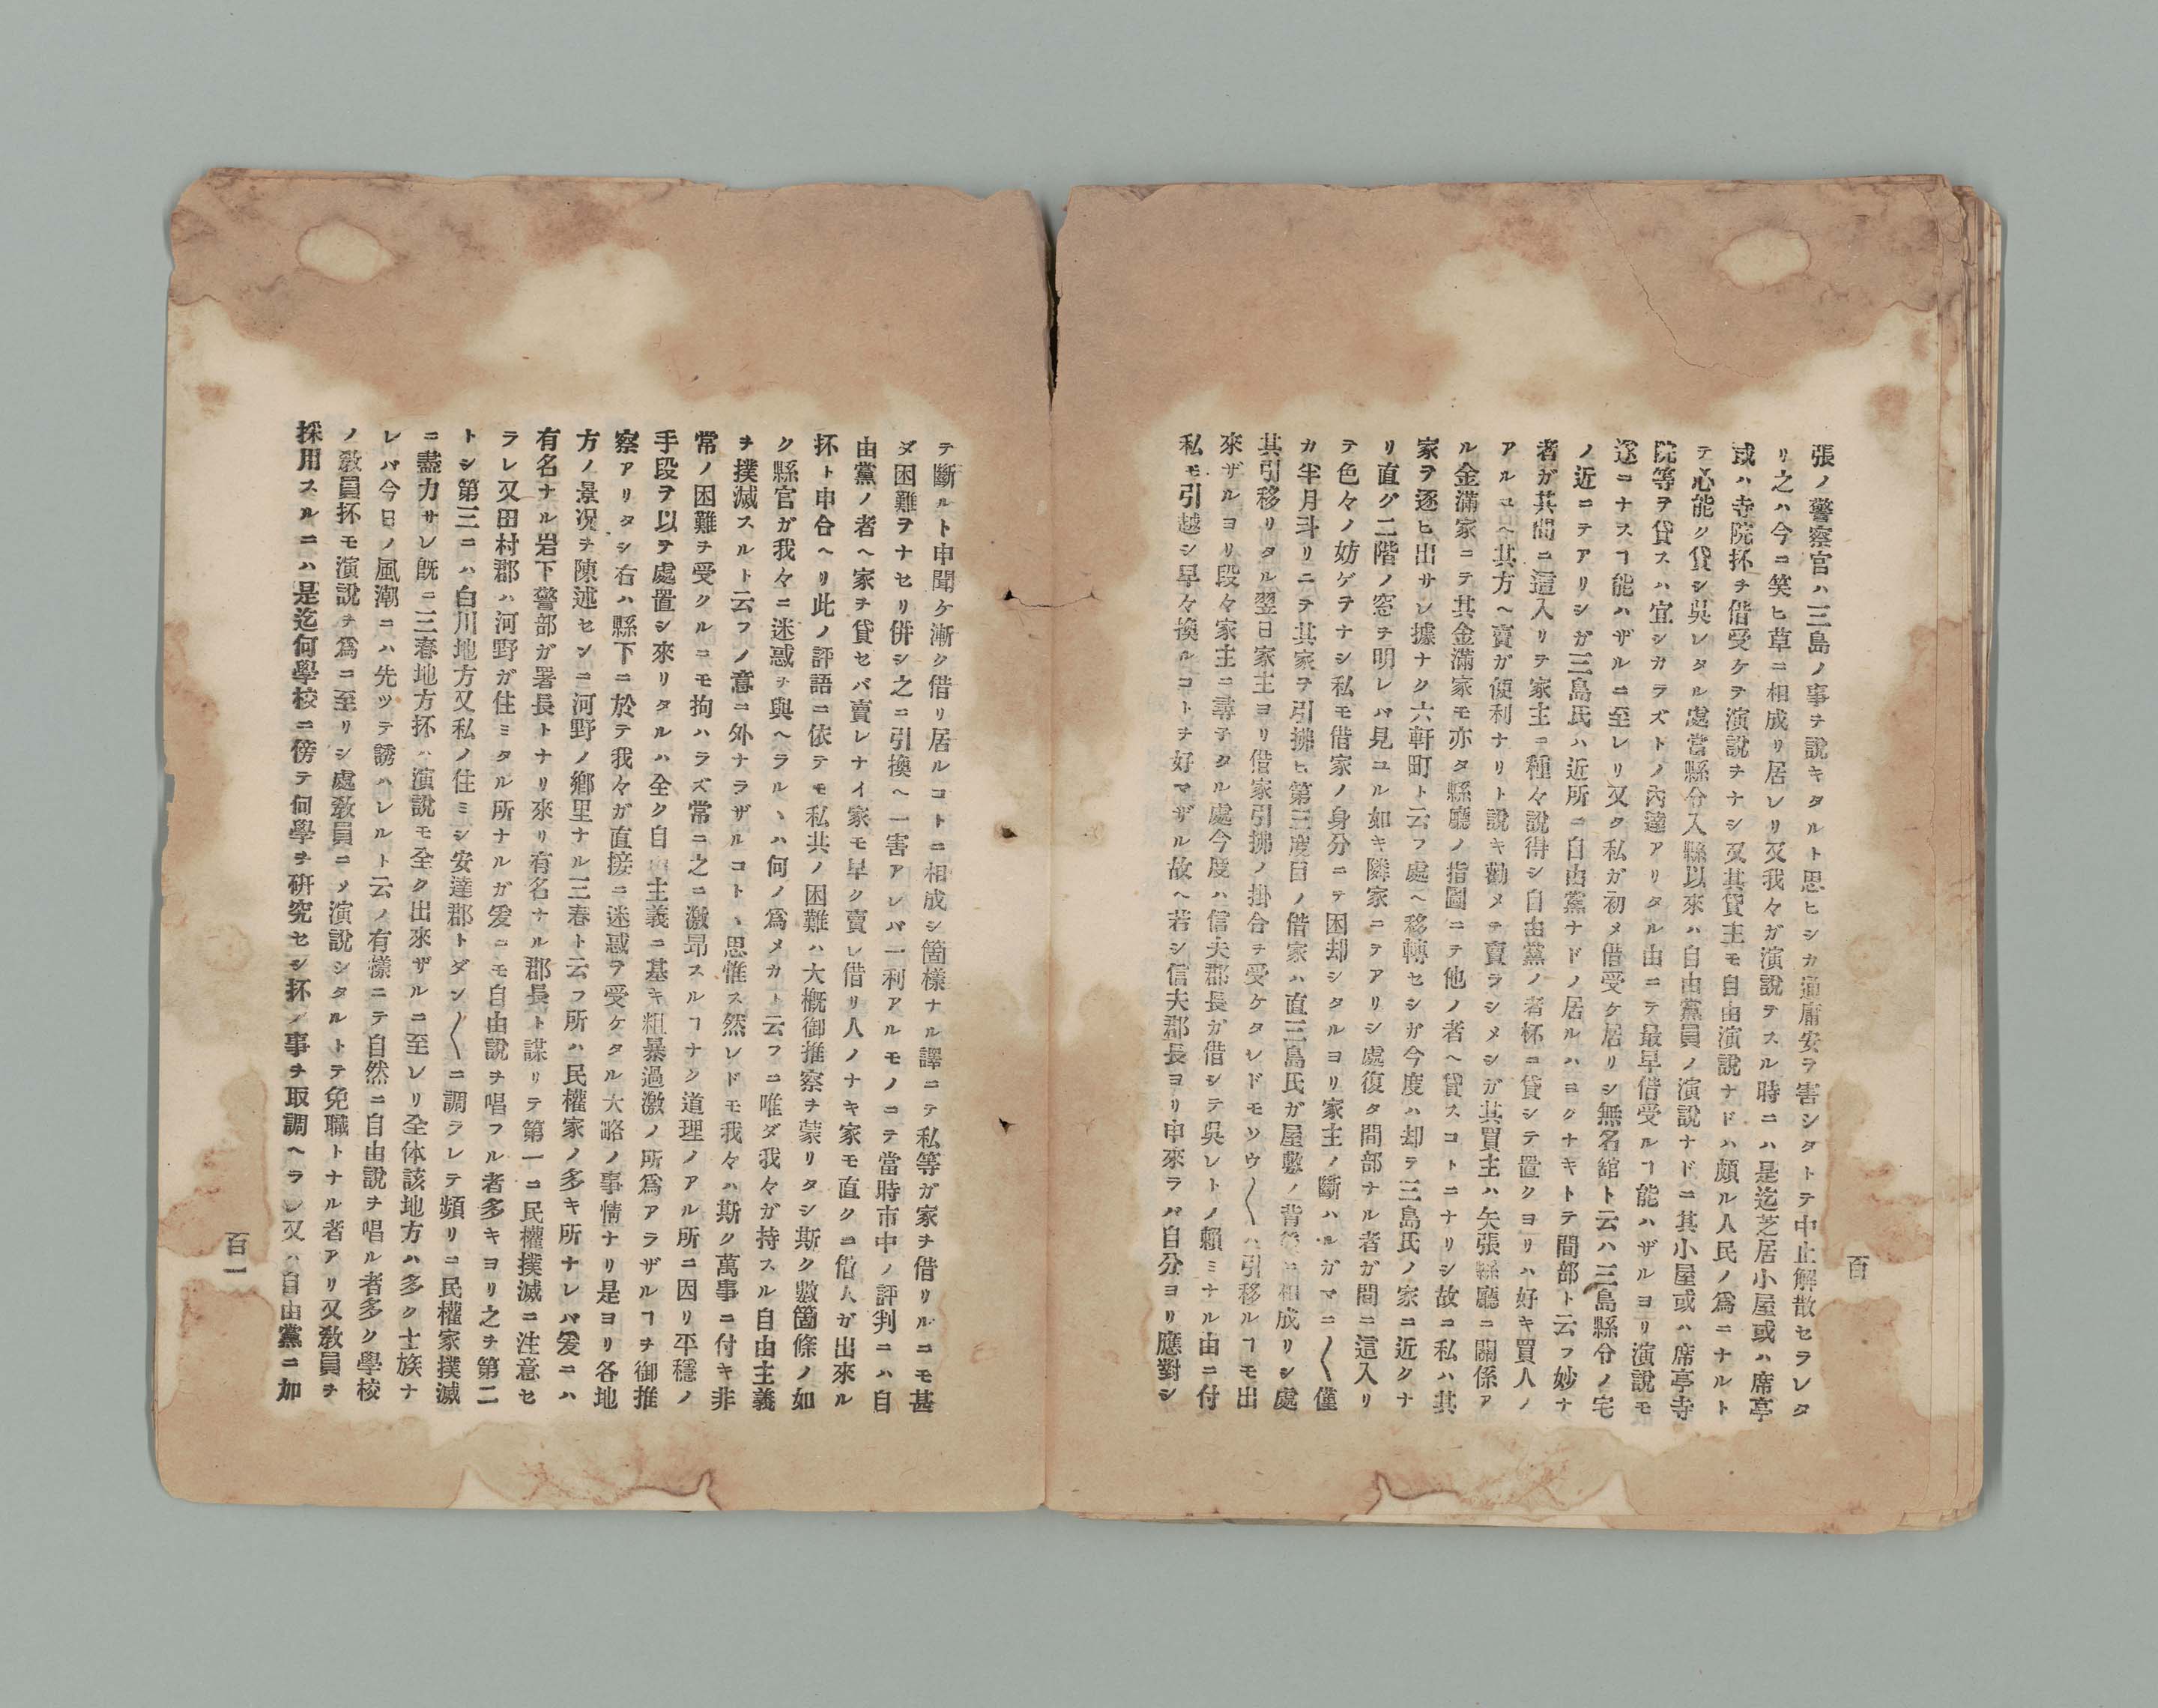 百
張ノ警察官ハ三島ノ事ヲ說キタルト思ヒシカ適庸安ヲ害シタトテ中止解散セラレタ
リ之ハ今ニ笑ヒ草ニ相成リ居レリ又我々ガ演說ヲスル時ニハ是迄芝居小屋或ハ席亭
或ハ寺院抔ヲ借受ケテ演說ヲナシ又其貸主モ自由演說ナドハ頗ル人民ノ爲ニナルト
テ心能ク貸シ吳レタル處當縣令入縣以來ハ自由黨員ノ演說ナドニ其小屋或ハ席亭寺
院等ヲ貸スハ宜シカラズトノ內達アリタル由ニテ最早借受ルヿ能ハザルヨリ演說モ
遂ニナスヿ能ハザルニ至レリ又タ私ガ初メ借受ケ居リシ無名舘ト云ハ三島縣令ノ宅
ノ近ニテアリシガ三島氏ハ近所ニ自由黨ナドノ居ルハヨクナキトテ間部ト云フ妙ナ
者ガ其間ニ這入リテ家主ニ種々說得シ自由黨ノ者杯ニ貸シテ置クヨリハ好キ買人ノ
アルユヘ其方ヘ賣ガ便利ナリト說キ勸メテ賣ラシメシガ其買主ハ矢張縣廳ニ關係ア
ル金滿家ニテ其金滿家モ亦タ縣廳ノ指圖ニテ他ノ者ヘ貸スコトニナリシ故ニ私ハ其
家ヲ逐ヒ出サレ據ナク六軒町ト云フ處ヘ移轉セシガ今度ハ却テ三島氏ノ家ニ近クナ
リ直グ二階ノ窓ヲ明レバ見ユル如キ隣家ニテアリシ處復タ間部ナル者ガ間ニ這入リ
テ色々ノ妨ゲヲナシ私モ借家ノ身分ニテ困却シタルヨリ家主ノ斷ハルガマニ〱僅
カ半月斗リニテ其家ヲ引拂ヒ第三度目ノ借家ハ直三島氏ガ屋敷ノ背後ニ相成リシ處
其引移リタル翌日家主ヨリ借家引拂ノ掛合ヲ受ケタレドモソウ〱ハ引移ルヿモ出
來ザルヨリ段々家主ニ尋子タル處今度ハ信夫郡長ガ借シテ吳レトノ賴ミナル由ニ付
私モ引越シ早々換ルコトヲ好マザル故ヘ若シ信夫郡長ヨリ申來ラバ自分ヨリ應對シ
テ斷ルト申聞ケ漸ク借リ居ルコトニ相成シ箇樣ナル譯ニテ私等ガ家ヲ借リルニモ甚
ダ困難ヲナセリ併シ之ニ引換ヘ一害アレバ一利アルモノニテ當時市中ノ評判ニハ自
由黨ノ者ヘ家ヲ貸セバ賣レナイ家モ早ク賣レ借リ人ノナキ家モ直クニ借人ガ出來ル
抔ト申合ヘリ此ノ評語ニ依テモ私共ノ困難ハ大槪御推察ヲ蒙リタシ斯ク數箇條ノ如
ク縣官ガ我々ニ迷惑ヲ與ヘラルヽハ何ノ爲メカト云フニ唯ダ我々ガ持スル自由主義
ヲ撲滅スルト云フノ意ニ外ナラザルコトヽ思惟ス然レドモ我々ハ斯ク萬事ニ付キ非
常ノ困難ヲ受クルニモ拘ハラズ常ニ之ニ激昂スルヿナク道理ノアル所ニ因リ平穩ノ
手段ヲ以テ處置シ來リタルハ全ク自由主義ニ基キ粗暴過激ノ所爲アラザルヿヲ御推
察アリタシ右ハ縣下ニ於テ我々ガ直接ニ迷惑ヲ受ケタル大略ノ事情ナリ是ヨリ各地
方ノ景况ヲ陳述セシニ河野ノ鄕里ナル三春ト云フ所ハ民權家ノ多キ所ナレバ爰ニハ
有名ナル岩下警部ガ署長トナリ來リ有名ナル郡長ト謀リテ第一ニ民權撲滅ニ注意セ
ラレ又田村郡ハ河野ガ住ミタル所ナルガ爰ニモ自由說ヲ唱フル者多キヨリ之ヲ第二
トシ第三ニハ白川地方又私ノ住ミシ安達郡トダン〱ニ調ラレテ頻リニ民權家撲滅
ニ盡力サレ旣ニ三春地方抔ハ演說モ全ク出來ザルニ至レリ全体該地方ハ多ク士族ナ
レバ今日ノ風潮ニハ先ツテ誘ハレルト云ノ有樣ニテ自然ニ自由說ヲ唱ル者多ク學校
ノ敎員抔モ演說ヲ爲ニ至リシ處敎員ニノ演說シタルトテ免職トナル者アリ又敎員ヲ
採用スルニハ是迄何學校ニ傍テ何學ヲ硏究セシ抔ノ事ヲ取調ヘラレ又ハ自由黨ニ加
百一